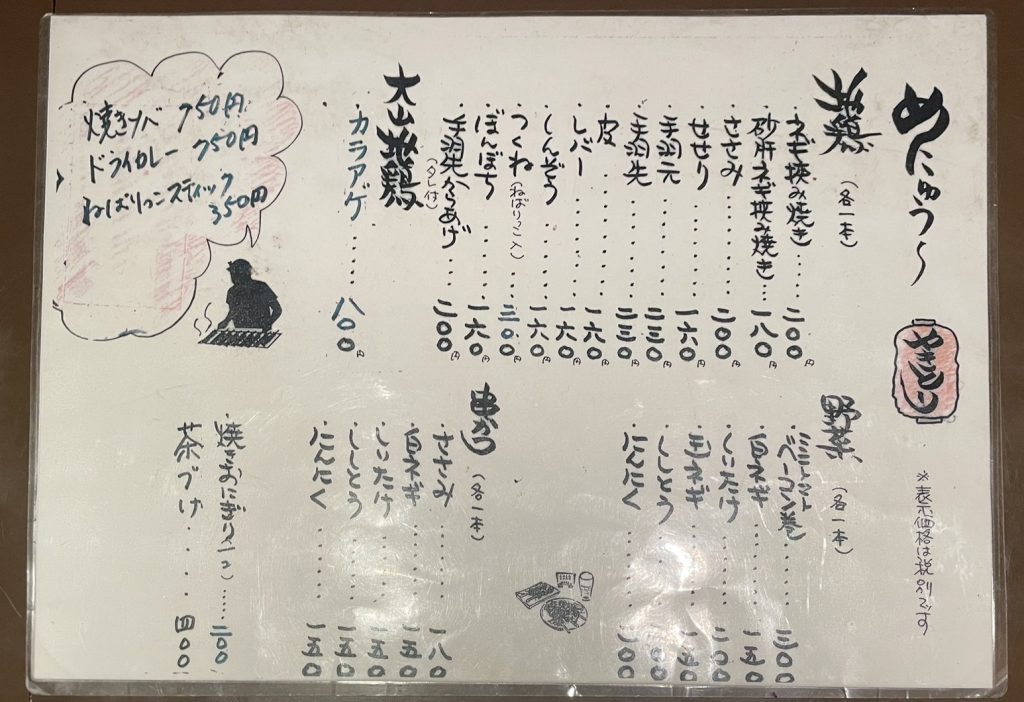 めにゅう〜
やきとり
※表示価格は税別です
地鶏 (各一本)
・ネギ挟み焼き……二〇〇円
・砂肝ネギ挟み焼き…一八〇円
・ささみ……二〇〇円
・せせり……一六〇円
・手羽元……二三〇円
・手羽先……二三〇円
・皮……一六〇円
・レバー……一六〇円
・しんぞう……一六〇円
・つくね(ねばりっこ入)……二〇〇円
・ぼんぼち……一六〇円
・手羽先からあげ(タレ付)……二〇〇円
大山地鶏
・カラアゲ……八〇〇円
野菜 (各一本)
・ミニトマトベーコン巻……三〇〇
・白ネギ……一五〇
・しいたけ……二〇〇
・玉ネギ……一五〇
・ししとう……二〇〇
・にんにく……二〇〇
串かつ (各一本)
・ささみ……一八〇
・白ネギ……一五〇
・しいたけ……一五〇
・ししとう……一五〇
・にんにく……一五〇
・焼きおにぎり(二コ)……三〇〇
茶づけ……四〇〇
焼きナベ 750円
ドライカレー 750円
ねばりっこスティック
350円